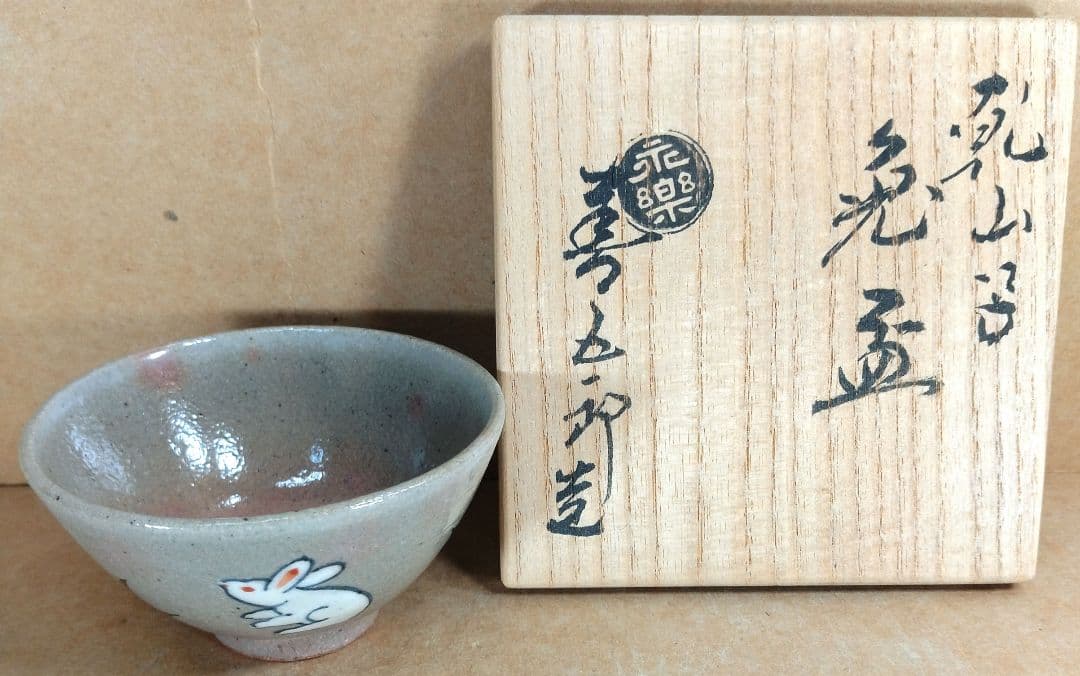 乾山写
兎盃
永楽
善五郎造